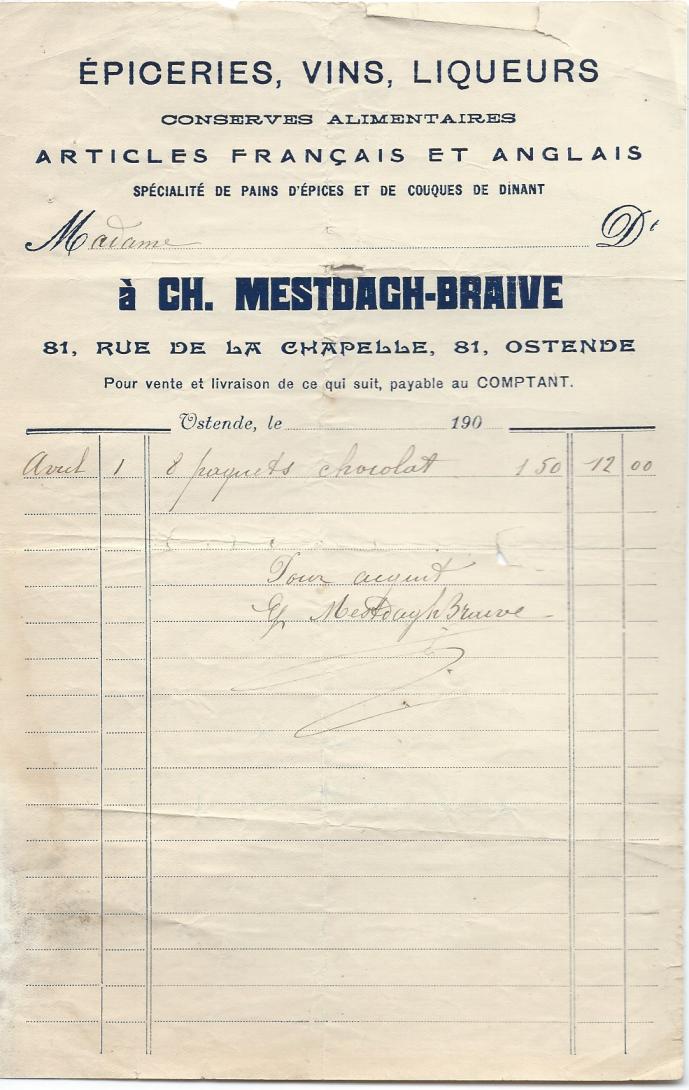 ÉPICERIES, VINS, LIQUEURS
CONSERVES ALIMENTAIRES
ARTICLES FRANÇAIS ET ANGLAIS
SPÉCIALITÉ DE PAINS D'ÉPICES ET DE COUQUES DE DINANT
Madame Dt
à CH. MESTDAGH-BRAIVE
81, RUE DE LA CHAPELLE, 81, OSTENDE
Pour vente et livraison de ce qui suit, payable au COMPTANT.
Ostende, le 190
Avril 1 8 paquets chocolat 1 50 12 00
Pour acquit
MestdaghBraive